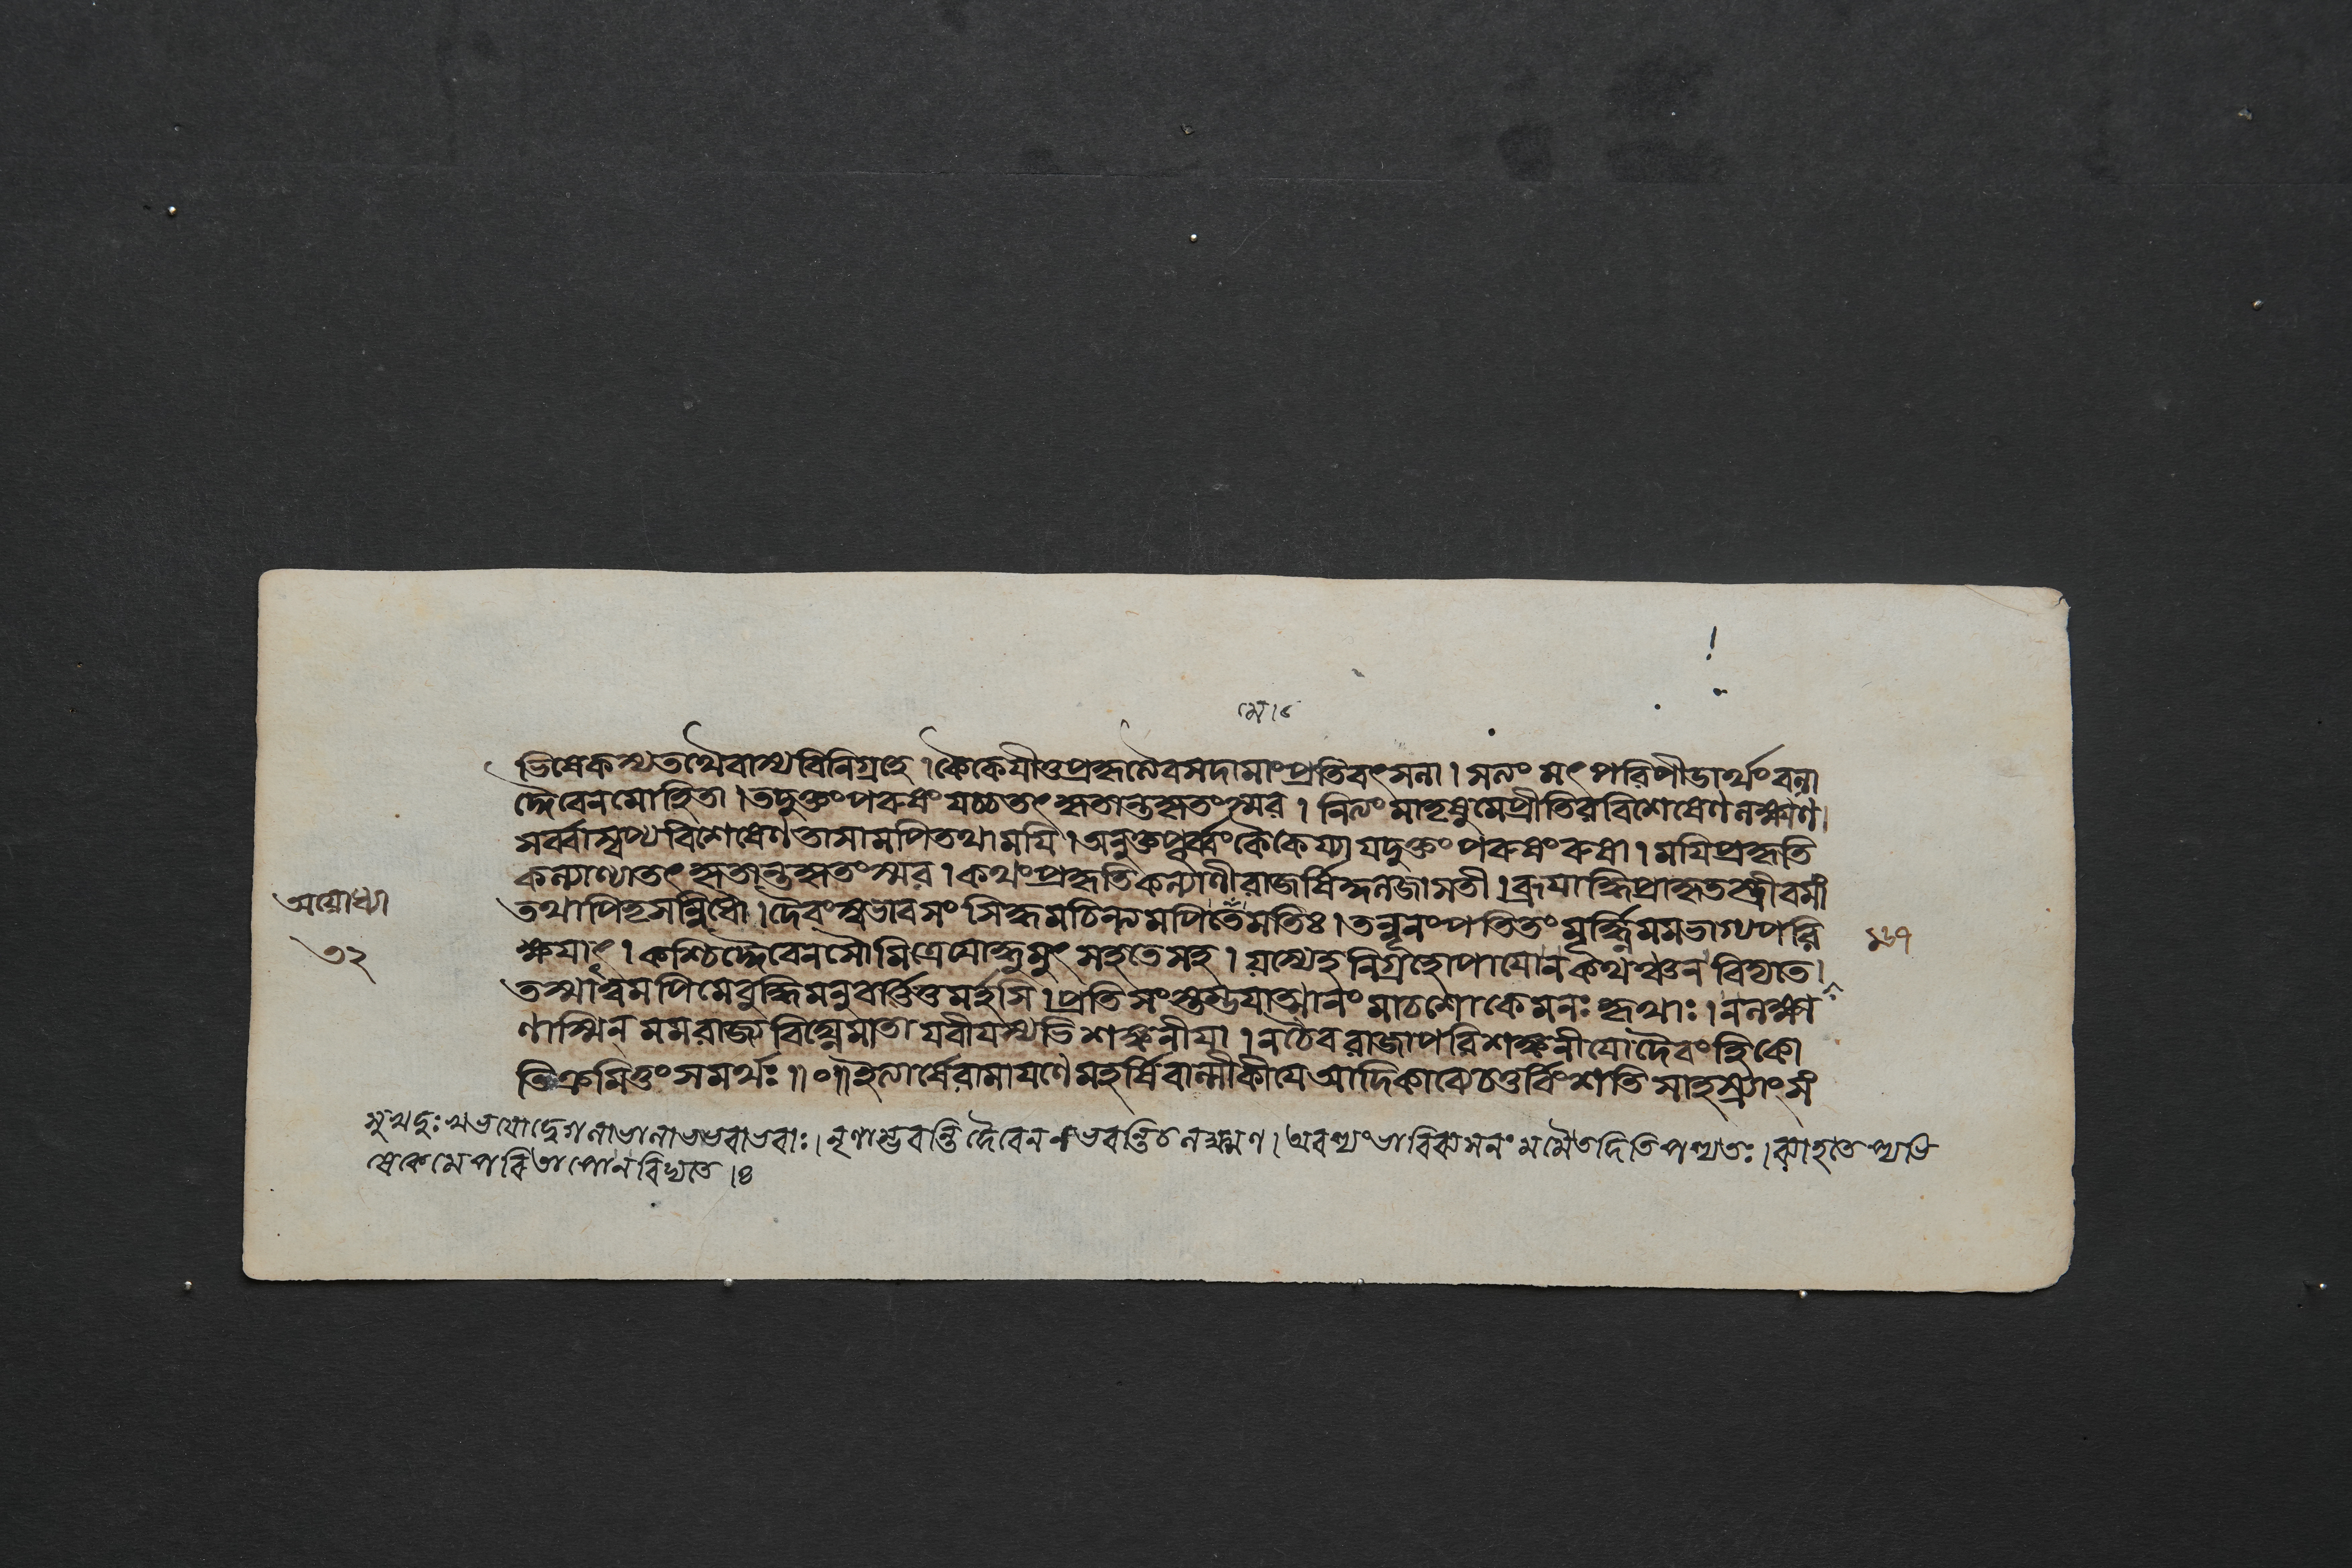 মে।৫
ভিষেকস্যতথৈবাস্যবিনিগ্রহে।কৈকেয়ীতুপ্রকৃত্যৈবসদামাংপ্রতিবৎসলা।সলং মৎপরিপীডার্থংবলা
দ্দৈবেনমোহিতা।তদুক্তংপরুষংযচ্চতৎকৃতান্তকৃতংস্মর।নিত্যং মাতৃষুমেপ্রীতিরবিশেষেণলক্ষ্মণ।
সর্ব্বাস্বপ্যবিশেষেণতাসামপিতথাময়ি।অনুক্তপূর্ব্বংকৈকেয্যাযদুক্তংপরুষংরুষা।ময়িপ্রকৃতি
কল্যাণ্যাতৎকৃতান্তকৃতংস্মর।কথংপ্রকৃতিকল্যাণীরাজর্ষিকুলজাসতী।ব্রূয়াদ্ধিপ্রাকৃতস্ত্রীবমাং
অয়োধ্যা
তথাপিতৃসন্নিধৌ।দৈবংস্বভাবসংসিদ্ধমচিন্ত্যমপিতেমতিঃ।তন্নূনংপতিতংমূর্দ্ধ্নিমমভাগ্যপরি
৩২
ক্ষয়াৎ।কশ্চিদ্দৈবেনসৌমিত্রেযোদ্ধুমুৎসহতেসহ।যস্যেহনিগ্রহোপায়োনকথঞ্চনবিদ্যতে।
তস্মাত্ত্বমপিমেবুদ্ধিমনুবর্ত্তিতুমর্হসি।প্রতিসংস্তম্ভয়াত্মানংমাচশোকেমনঃকৃথাঃ।নলক্ষ্ম
ণাস্মিন্ মমরাজ্যবিঘ্নেমাতাযবীয়স্যভিশঙ্কনীয়া।নচৈবরাজাপরিশঙ্কনীয়োদৈবংহিকো
তিক্রমিতুংসমর্থঃ॥০॥ইত্যার্ষেরামায়ণেমহর্ষিবাল্মীকীয়েআদিকাব্যেচতুর্বিংশতিসাহস্র্যাংসং
সুখদুঃখভয়োদ্বেগলাভালাভভবাভবাঃ।নৃণাম্ভবন্তিদৈবেননভবন্তিচলক্ষ্মণ।অবশ্যংভাবিব্যসনংমমৈতদিতিপশ্যতঃ।ব্যাহতেপ্যভি
ষেকেমেপরিতাপোনবিদ্যতে।৪